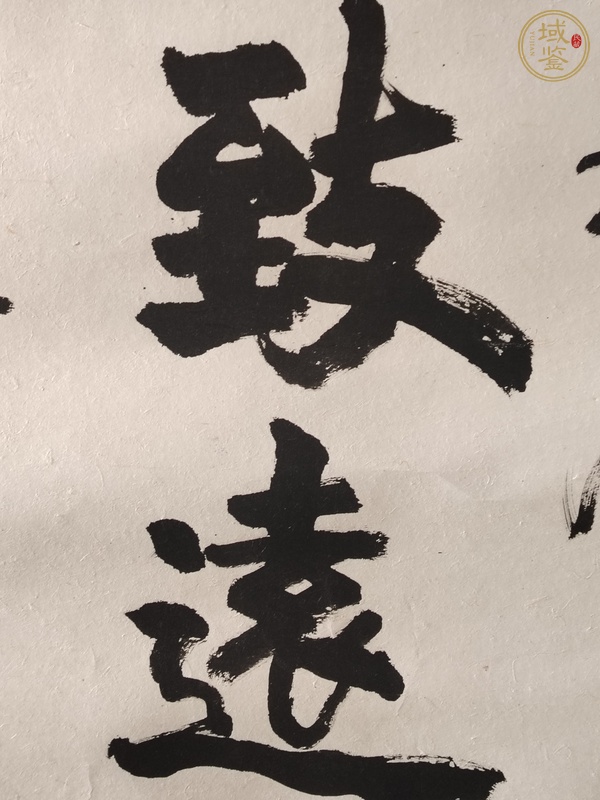 致
遠
域鉴
YUJIAN